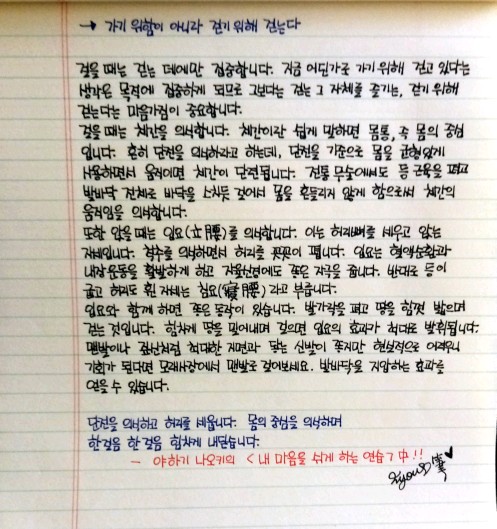 → 가기 위함이 아니라 걷기 위해 걷는다
걸을 때는 걷는 데에만 집중합니다. 지금 어딘가로 가기 위해 걷고 있다는
생각은 목적에 집중하게 되므로 그보다는 걷는 그 자체를 즐기는, 걷기 위해
걷는다는 마음가짐이 중요합니다.
걸을 때는 체간을 의식합니다. 체간이란 쉽게 말하면 몸통, 즉 몸의 중심
입니다. 흔히 단전을 의식하라고 하는데, 단전을 기준으로 몸을 균형있게
사용하면서 움직이면 체간이 단련됩니다. 전통 무술에서도 등 근육을 펴고
발바닥 전체로 바닥을 스치듯 걸어서 몸을 흔들리지 않게 함으로써 체간의
움직임을 의식합니다.
또한 앉을 때는 입요(立腰)를 의식합니다. 이는 허리뼈를 세우고 앉는
자세입니다. 척추를 의식하면서 허리를 꼿꼿이 폅니다. 입요는 혈액순환과
내장운동을 활발하게 하고 자율신경에도 좋은 자극을 줍니다. 반대로 등이
굽고 허리도 휜 자세는 침요(寢腰)라고 부릅니다.
입요와 함께 하면 좋은 동작이 있습니다. 발가락을 펴고 땅을 힘껏 밟으며
걷는 것입니다. 힘차게 땅을 밀어내며 걸으면 입요의 효과가 최대로 발휘됩니다.
맨발이나 짚신처럼 최대한 지면과 닿는 신발이 좋지만 현실적으로 어려우니
기회가 된다면 모래사장에서 맨발로 걸어보세요. 발바닥을 지압하는 효과를
얻을 수 있습니다.
단전을 의식하고 허리를 세웁니다. 몸의 중심을 의식하며
한걸음 한걸음 힘차게 내딛습니다.
- 야하기 나오키의 <내 마음을 쉬게 하는 연습>中!!